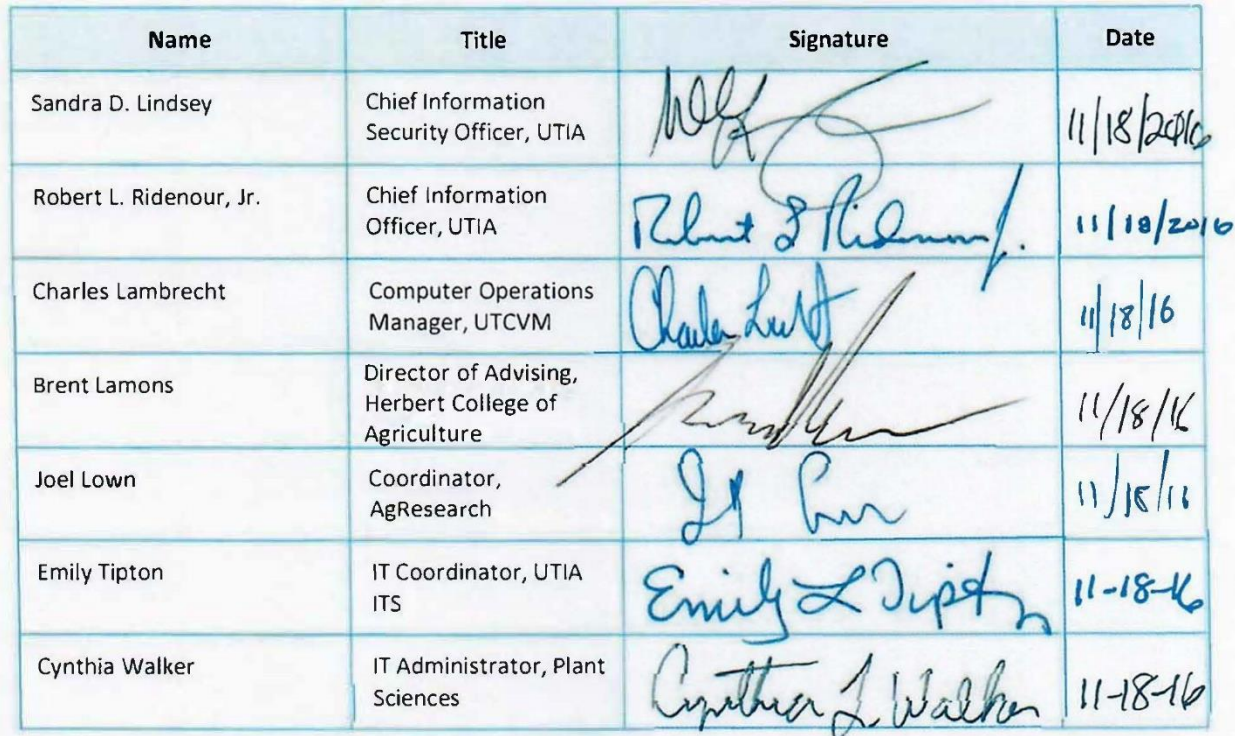 Name Title Signature Date
Sandra D. Lindsey
Chief Information
Security Officer, UTIA
11/18/2016
Robert L. Ridenour, Jr.
Chief Information
Officer, UTIA
Robert L Ridenour Jr.
11/18/2016
Charles Lambrecht
Computer Operations
Manager, UTCVM
Charles
11/18/16
Brent Lamons
Director of Advising,
Herbert College of
Agriculture
11/18/16
Joel Lown
Coordinator,
AgResearch
11/18/16
Emily Tipton
IT Coordinator, UTIA
ITS
Emily L Tipton
11-18-16
Cynthia Walker
IT Administrator, Plant
Sciences
Cynthia L. Walker
11-18-16